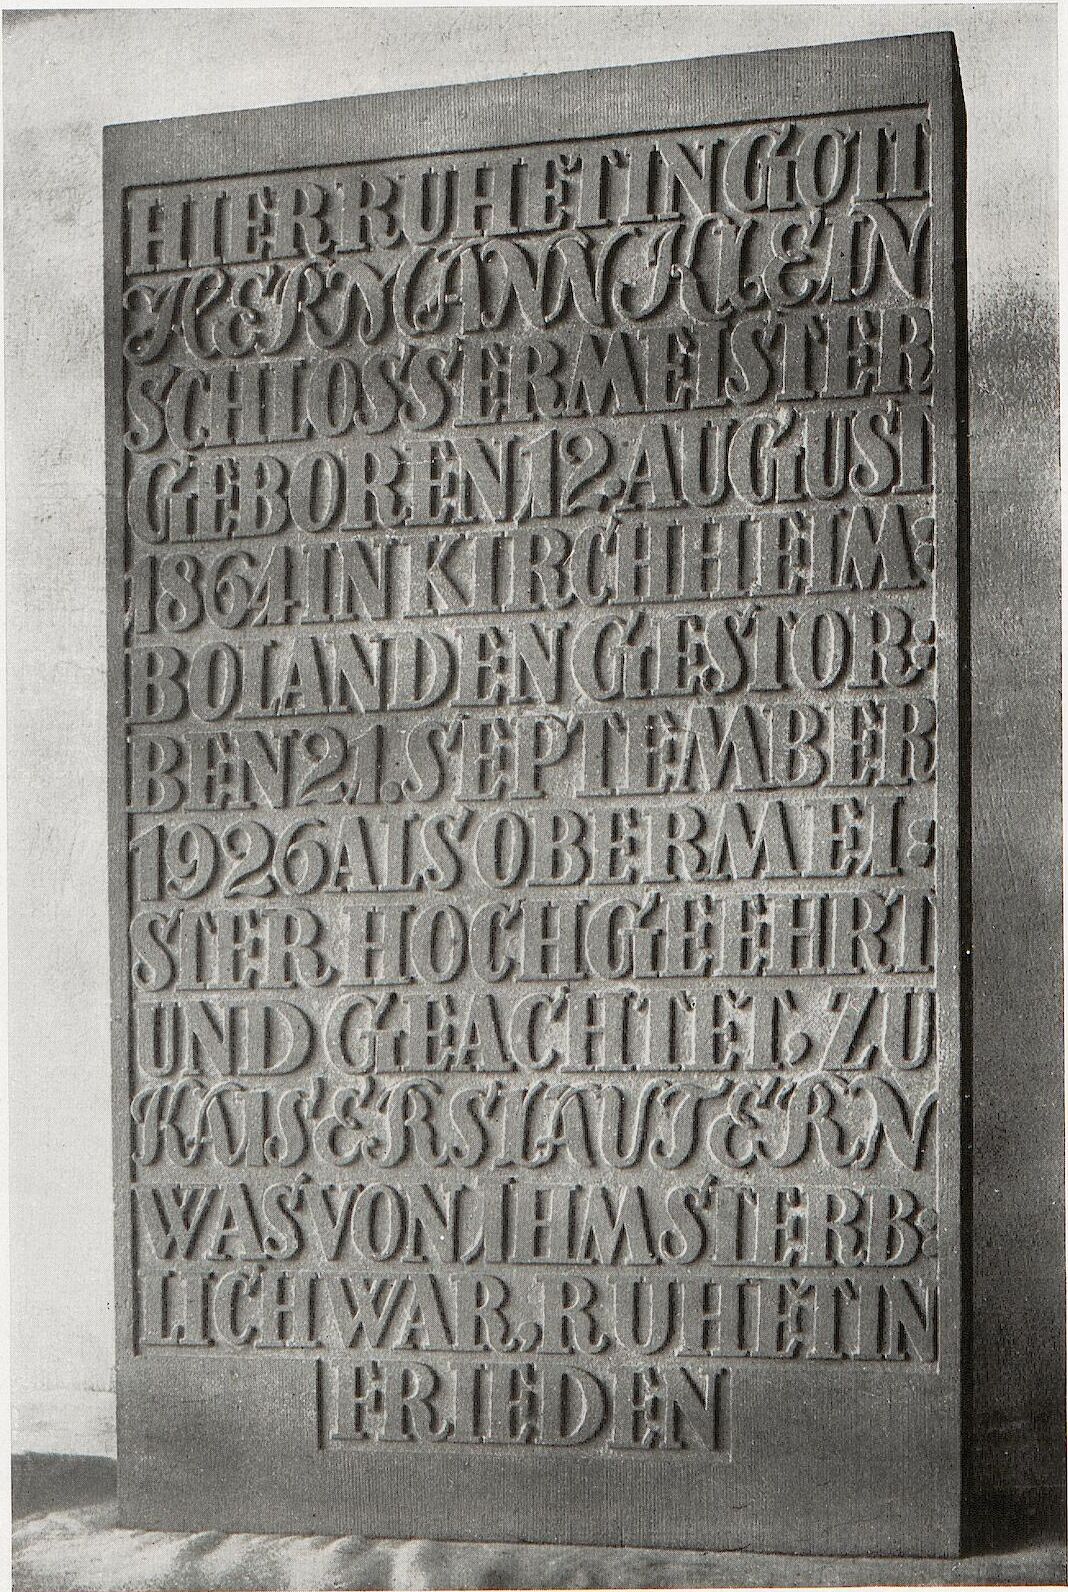 HIER RUHET IN GOTT
HERMANN KLEIN
SCHLOSSERMEISTER
GEBOREN 12. AUGUST
1864 IN KIRCHHEIM:
BOLANDEN GESTOR:
BEN 21. SEPTEMBER
1926 ALS OBERMEI:
STER HOCHGEEHRT
UND GEACHTET, ZU
KAISERSLAUTERN
WAS VON IHM STERB:
LICH WAR, RUHET IN
FRIEDEN